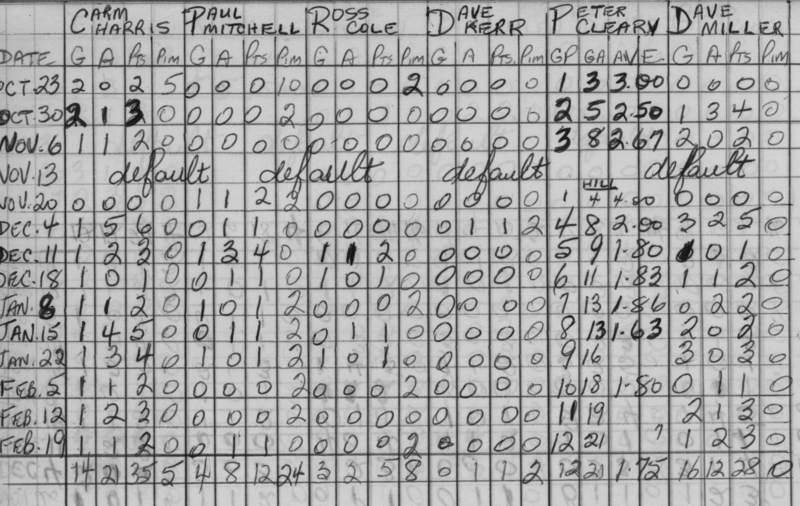 CARM HARRIS PAUL MITCHELL ROSS COLE DAVE KERR PETER CLEARY DAVE MILLER
DATE G A Pts Pim G A Pts Pim G A Pts Pim G A Pts. Pim GP GA AVE. G A Pts Pim
OCT.23 2 0 2 5 0 0 0 10 0 0 0 2 0 0 0 0 1 3 3.00 0 0 0 0
OCT.30 2 1 3 0 0 0 0 2 0 0 0 0 0 0 0 0 2 5 2.50 1 3 4 0
NOV.6 1 1 2 0 0 0 0 0 0 0 0 0 0 0 0 0 3 8 2.67 2 0 2 0
NOV.13 default default default default
HILL
NOV.20 0 0 0 0 1 1 2 2 0 0 0 0 0 0 0 0 1 4 4.00 0 0 0 0
DEC.4 1 5 6 0 0 1 1 0 0 0 0 0 0 1 1 2 4 8 2.00 3 2 5 0
DEC.11 1 2 3 0 1 3 4 0 1 1 2 0 0 0 0 0 5 9 1.80 1 0 1 0
DEC.18 1 0 1 0 0 1 1 0 1 0 1 0 0 0 0 0 6 11 1.83 1 1 2 0
JAN.8 1 1 2 0 1 0 1 2 0 0 0 2 0 0 0 0 7 13 1.86 0 2 2 0
JAN.15 1 4 5 0 0 1 1 2 0 1 1 0 0 0 0 0 8 13 1.63 2 0 2 0
JAN.22 1 3 4 0 1 0 1 2 1 0 1 0 0 0 0 0 9 16 3 0 3 0
FEB.5 1 1 2 0 0 0 0 2 0 0 0 2 0 0 0 0 10 18 1.80 0 1 1 0
FEB.12 1 2 3 0 0 0 0 2 0 0 0 0 0 0 0 0 11 19 2 1 3 0
FEB.19 1 1 2 0 0 1 1 0 0 0 0 2 0 0 0 0 12 21 1 2 3 0
14 21 35 5 4 8 12 24 3 2 5 8 0 1 1 2 12 21 1.75 16 12 28 0